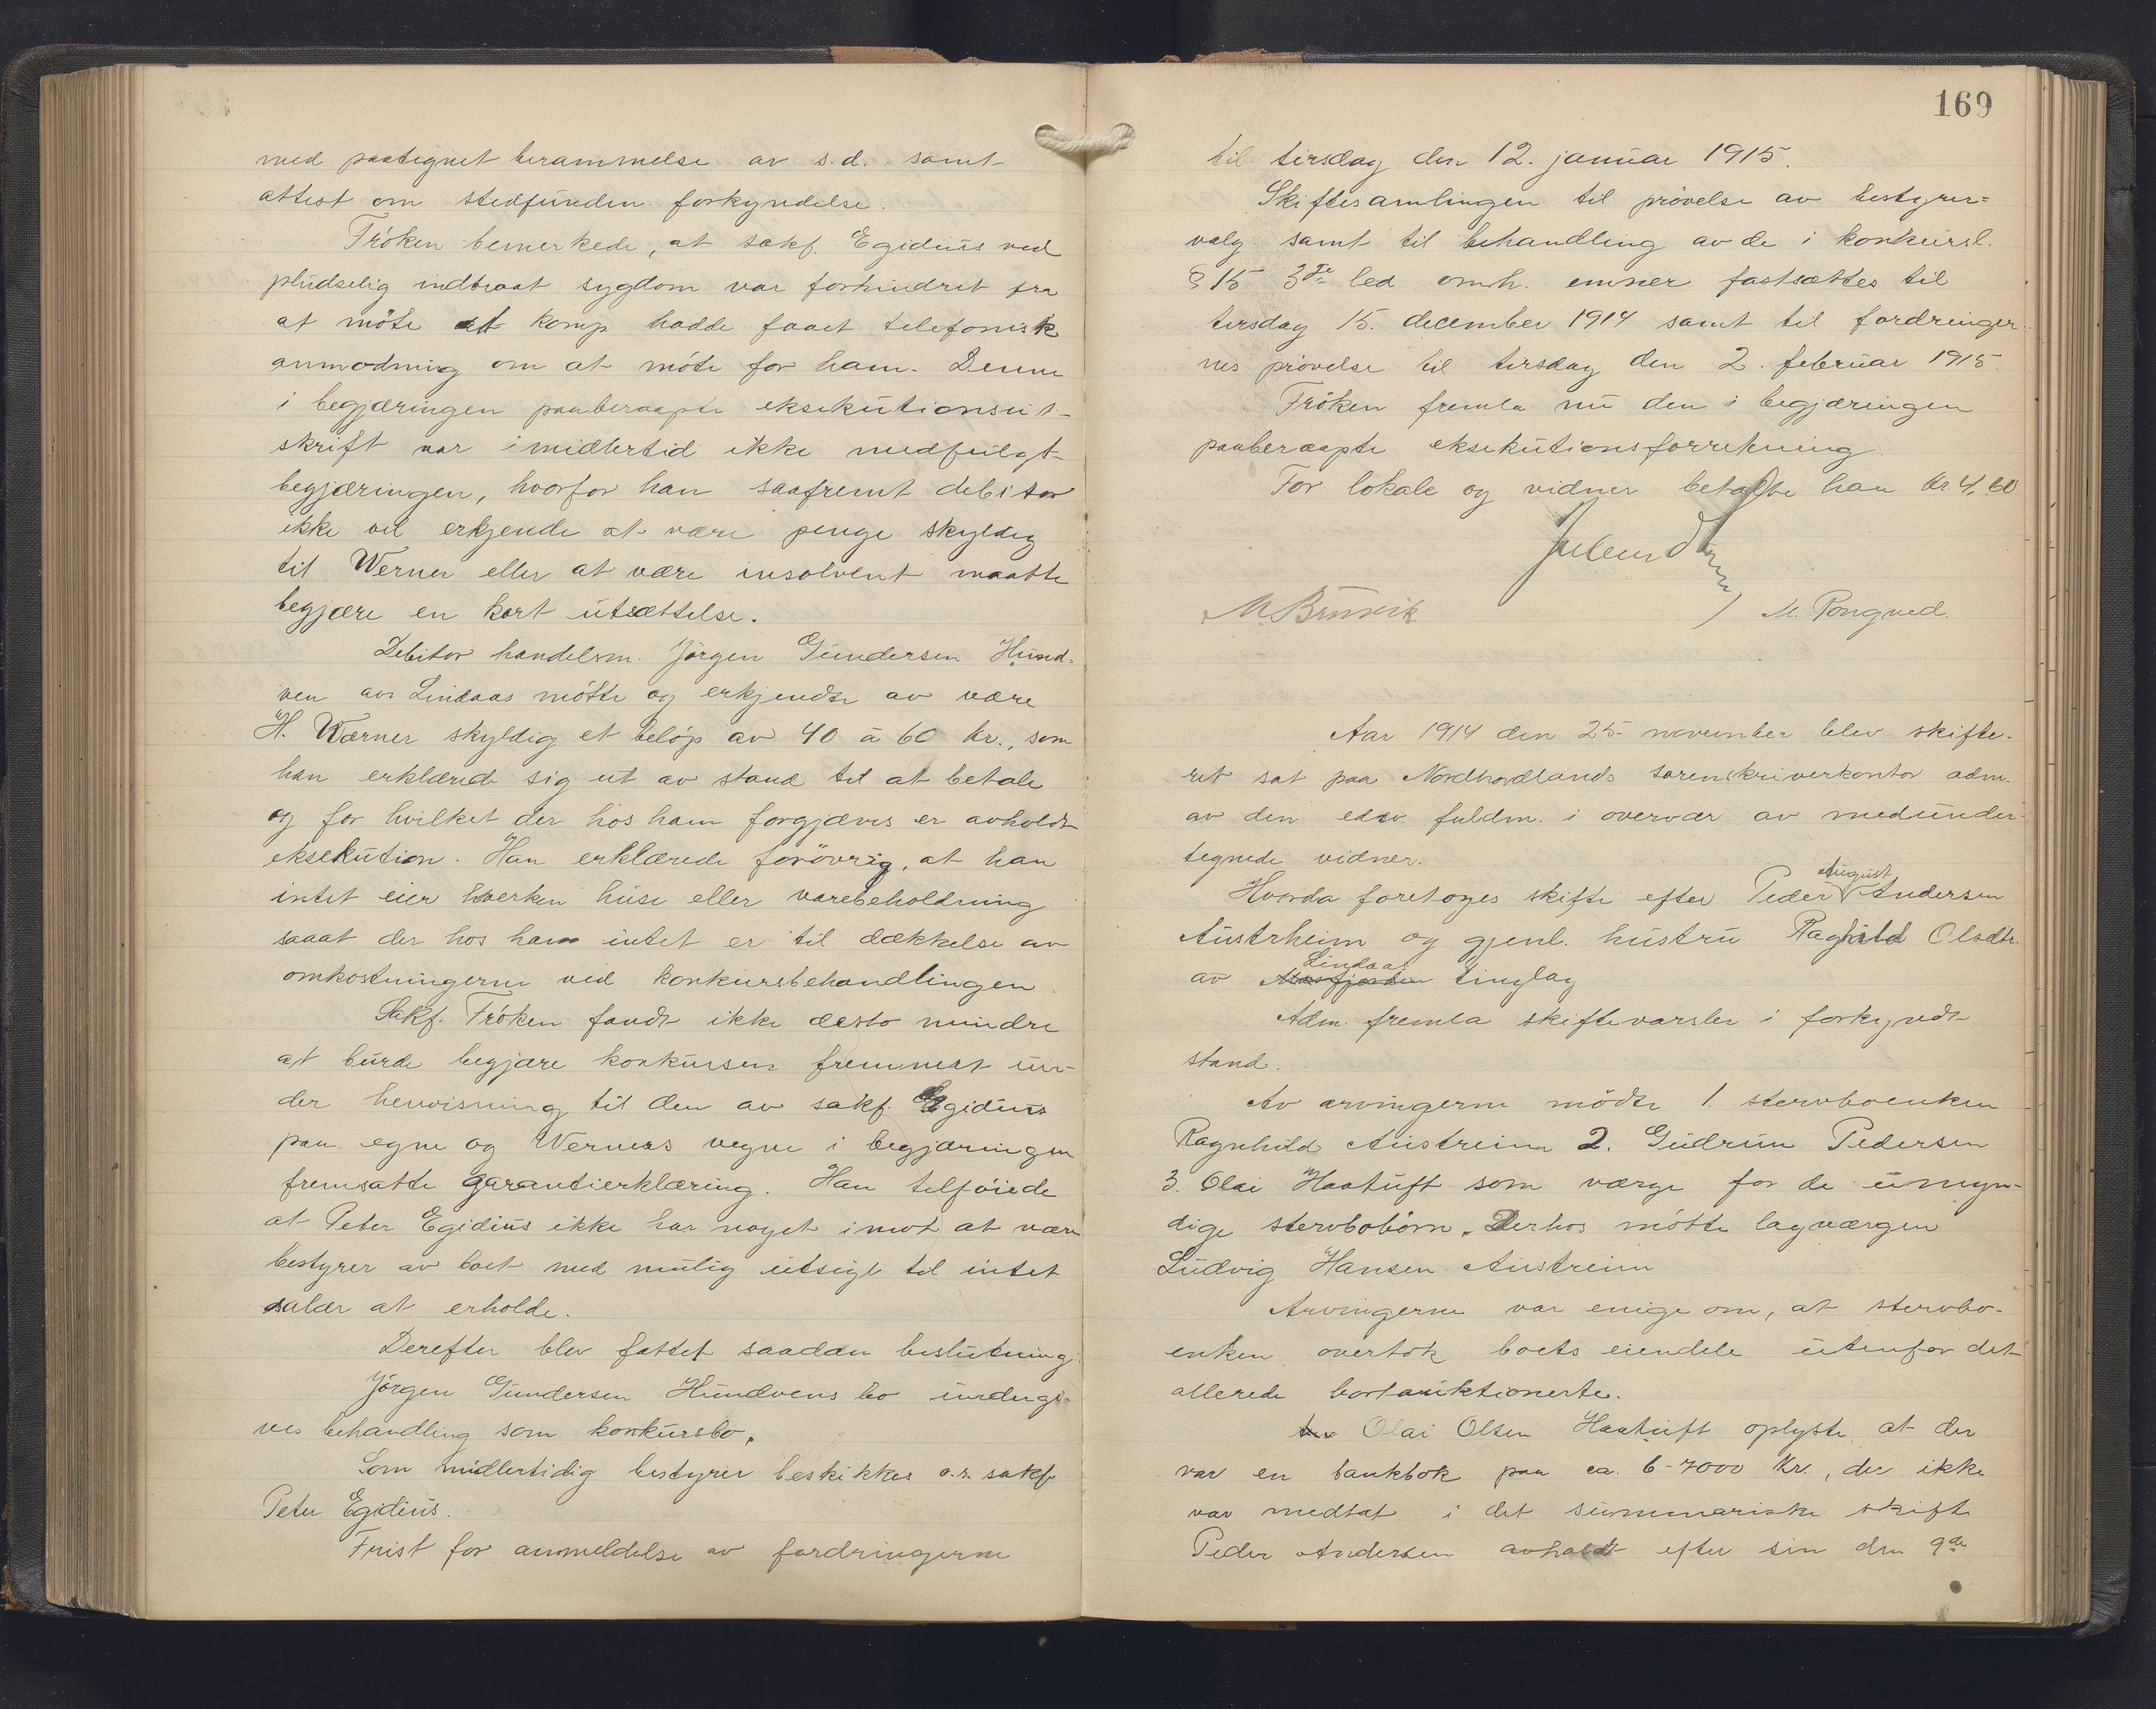 med paategnet berammelse av s.d. samt
attest om stedfunden forkyndelse.
Fröken bemerkede, at sakf. Egidius ved
pludselig indtraat sygdom var forhindret fra
at möte at komp hadde faaet telefonisk
anmodning om at möte for ham. Denne
i begjæringen paaberaapte eksekutionsut-
skrift var imidlertid ikke medfulgt
begjæringen, hvorfor han saafremt debitor
ikke vil erkjende at være penge skyldig
til Werner eller at være insolvent maatte
begjære en kort utsættelse.
Debitor handelsm. Jörgen Gundersen Hund-
ven av Lindaas mötte og erkjendte av være
H. Werner skyldig et belöp av 40 à 60 kr., som
han erklærede sig ut av stand til at betale
og for hvilket der hos ham forgjæves er avholdt
eksekution. Han erklærede forövrig, at han
intet eier hverken huse eller varebeholdning
saaat der hos ham intet er til dækkelse av
omkostningerne ved konkursbehandlingen.
Sakf. Fröken fandt ikke desto mindre
at burde begjære konkursen fremmet un-
der henvisning til den av sakf. Egidius
paa egne og Werners vegne i begjæringen
fremsatte garantierklæring. Han tilföiede
at Peter Egidius ikke har noget imot at være
bestyrer av boet med mulig utsigt til intet
salær at erholde.
Derefter blev fattet saadan beslutning:
Jörgen Gundersen Hundvens bo undergi-
ves behandling som konkursbo.
Som midlertidig bestyrer beskikkes o.r. sakf.
Peter Egidius.
Frist for anmeldelse av fordringerne
169
til tirsdag den 12. januar 1915.
Skiftesamlingen til prövelse av bestyrer=
valg samt til behandling av de i konkursl.
§ 15 3die led omh. emner fastsættes til
tirsdag 15. december 1914 samt til fordringer-
nes prövelse til tirsdag den 2. februar 1915.
Fröken fremla nu den i begjæringen
paaberaapte eksekutionsforretning.
For lokale og vidner betalte han kr. 4,60
M. Brunvik / M. Rongved.
Aar 1914 den 25. november blev skifte-
ret sat paa Nordhordlands sorenskriverkontor adm.
av den edsv. fuldm. i overvær av medunder-
tegnede vidner.
August
Hvorda foretoges skifte efter Peder Andersen
Austrheim og gjenl. hustru Raghild Olsdtr.
Lindaas
av Masfjorden tinglag
Adm. fremla skiftevarsler i forkyndt
stand.
Av arvingerne mödte 1. stervboenken
Ragnhild Austreim 2. Gudrun Pedersen
3. Olai Haatuft som værge for de umyn-
dige stervbobörn. Derhos mötte lagværgen
Ludvig Hansen Austreim
Arvingerne var enige om, at stervbo-
enken overtok boets eiendele utenfor det
allerede bortauktionerte.
Olai Olsen Haatuft oplyste at der
var en bankbok paa ca. 6-7000 kr., der ikke
var medtat i det summariske skifte
Peder Andersen avholdt efter sin den 9de